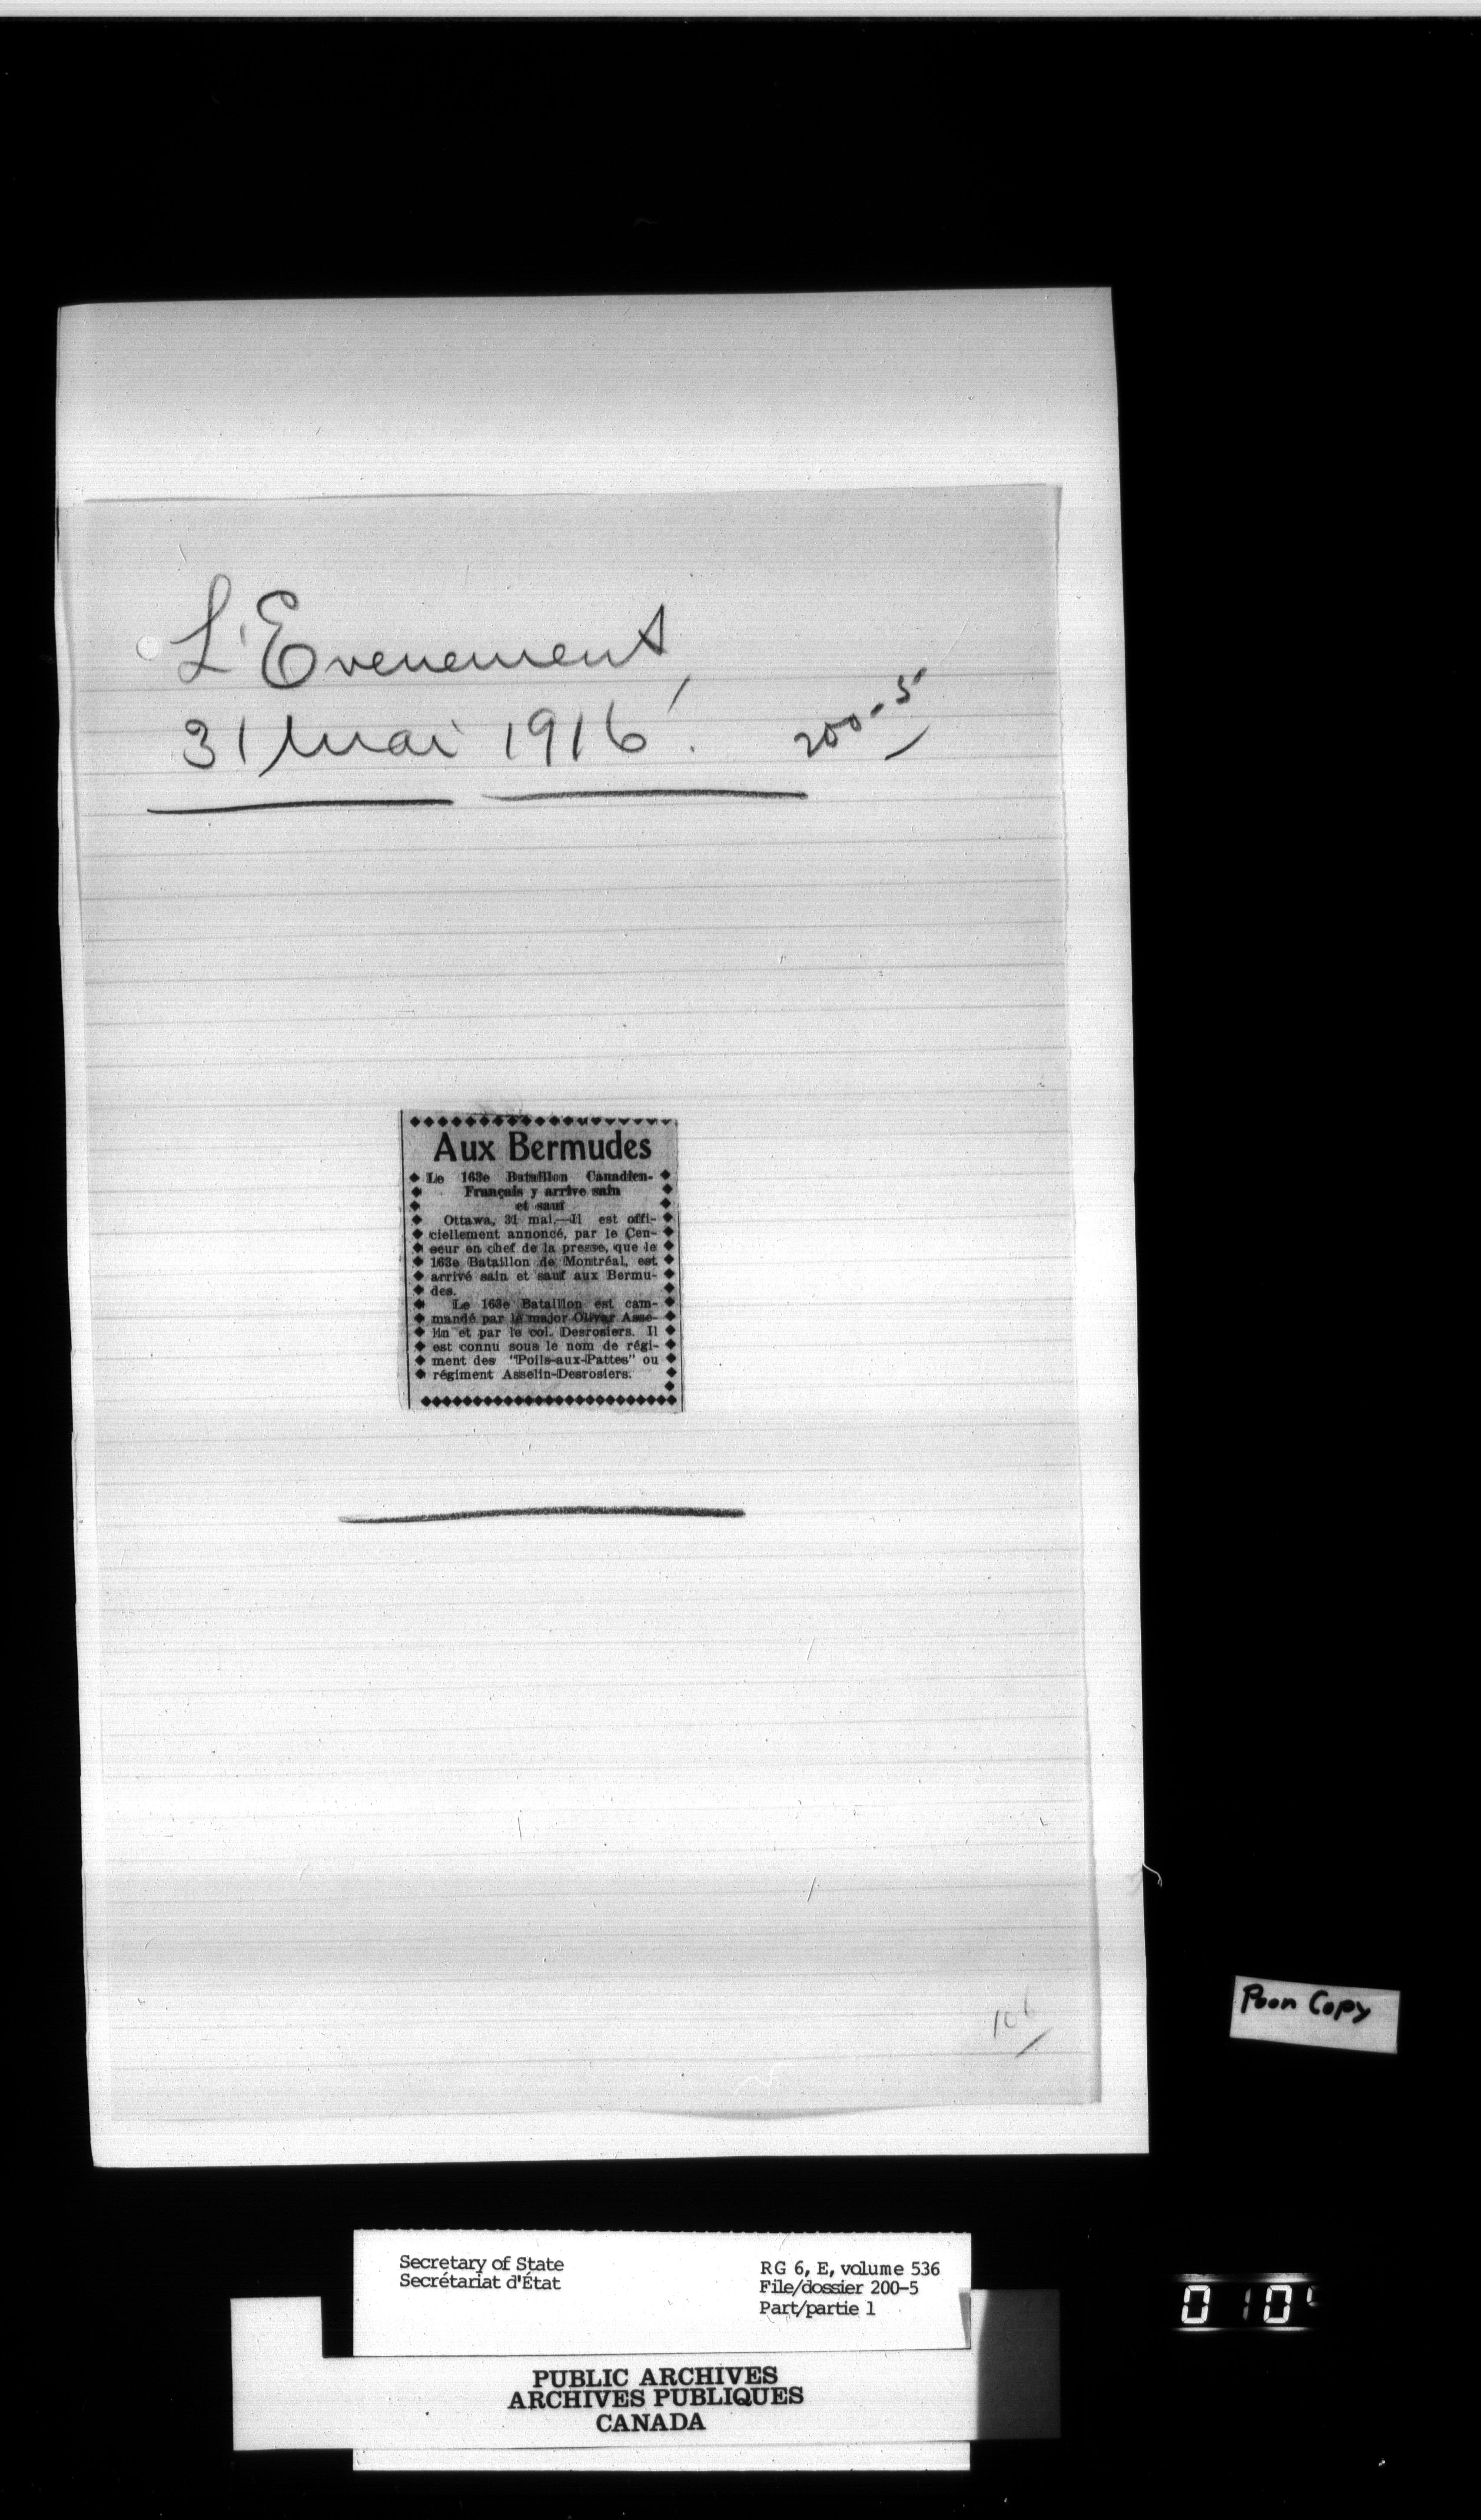 L'Evenement,
31 Mai 1916.
200-5
Aux Bermudes
Le 163e Bataillon Canadien-
Français y arrive sain
et sauf
Ottawa, 31 mai.—Il est offi-
ciellement annoncé, par le Cen-
seur en chef de la presse, que le
163e Bataillon de Montréal, est
arrivé sain et sauf aux Bermu-
des.
Le 163e Bataillon est cam-
mandé par le major Olivar Asse-
lin et par le col. Desrosiers. Il
est connu sous le nom de régi-
ment des "Poils-aux-Pattes" ou
régiment Asselin-Desrosiers.
106
Poor Copy
Secretary of State
Secrétariat d'État
RG 6, E, volume 536
File/dossier 200-5
Part/partie 1
PUBLIC ARCHIVES
ARCHIVES PUBLIQUES
CANADA
010